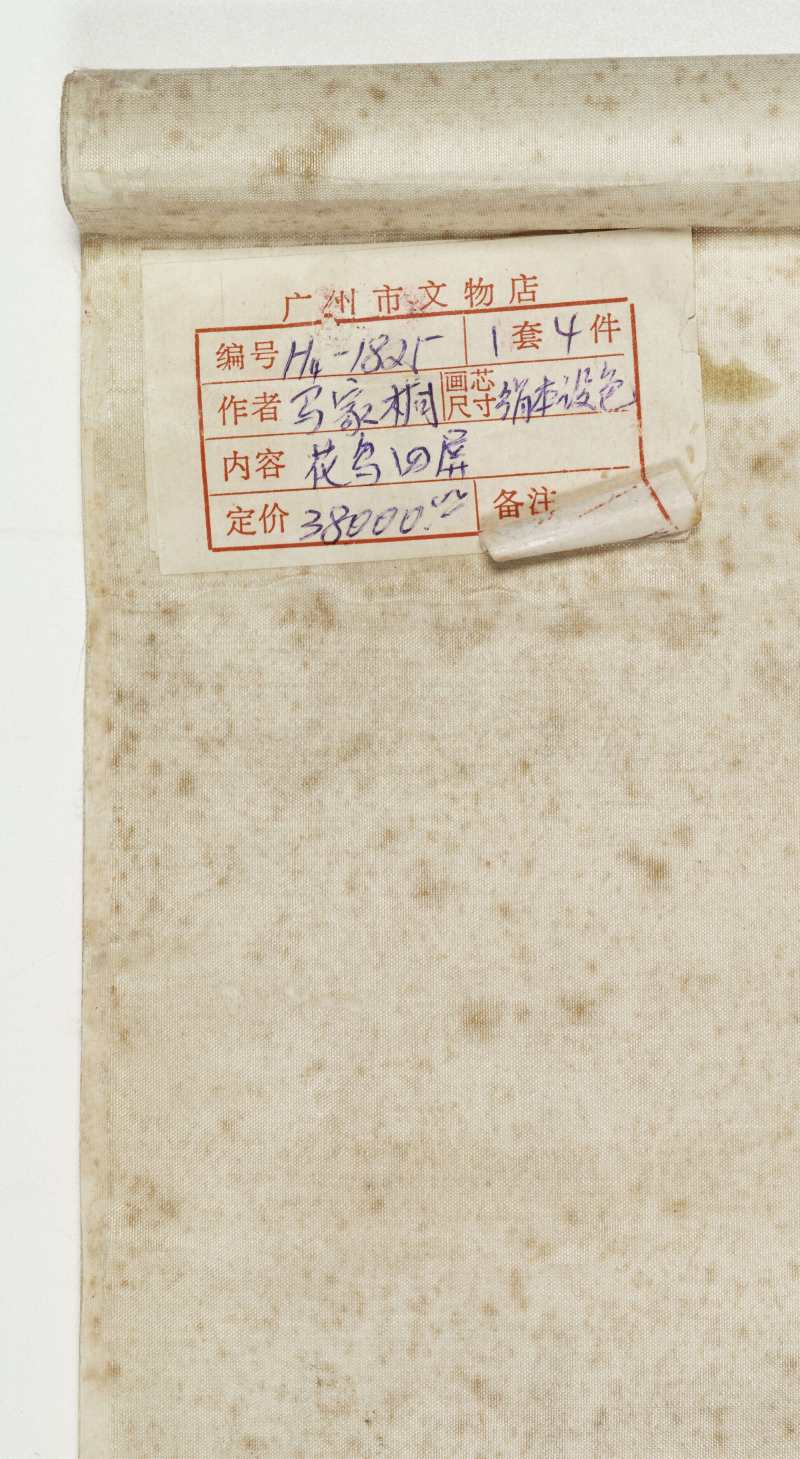 广州市文物店
编号 H4-1825 1套4件
作者 马家桐 画芯尺寸 绢本设色
内容 花鸟四屏
定价 38000.00 备注